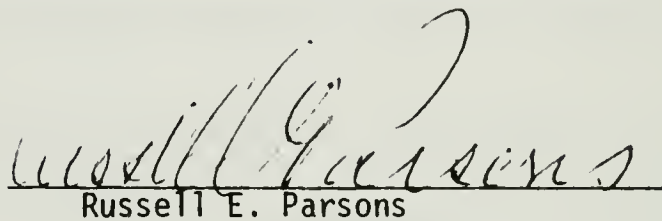 Russell E. Parsons
Russell E. Parsons